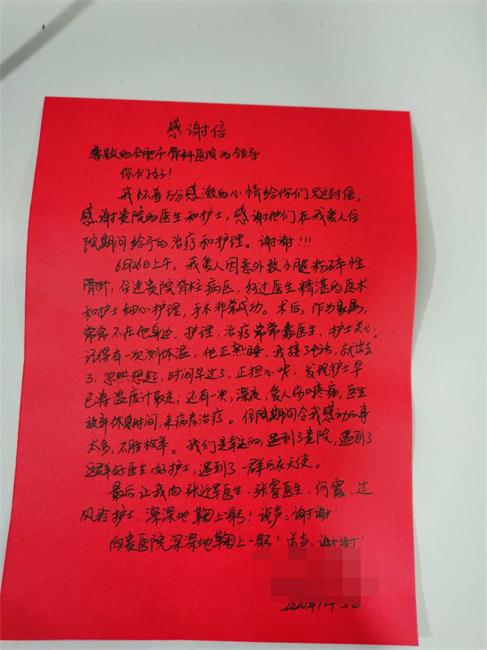 感谢信
尊敬的合肥市骨科医院的领导
你们好!
我怀着万分感激的心情给你们写这封信,
感谢贵院的医生和护士,感谢他们在我爱人住
院期间给予的治疗和护理。谢谢!!!
6月26日上午,我爱人因意外致小腿粉碎性
骨折,住进贵院脊柱病区,经过医生精湛的医术
和护士细心护理,手术非常成功。术后,作为家属,
常常不在他身边,护理,治疗常常靠医生,护士关心。
记得有一次测体温,他正熟睡,我接了电话,就出去
了,忽然想起,时间早过了,正担心呢,发现护士早
已将温度计取走;还有一次,深夜,爱人伤口疼痛,医生
放弃休息时间,来病房治疗。住院期间令我感动的事
太多,不胜枚举。我们是幸运的,遇到了贵院,遇到了
这群好医生好护士,遇到了一群白衣天使。
最后让我向张近军医生、张睿医生、何霞、过
风玲护士,深深地鞠上一躬!说声:谢谢!
向贵医院深深地鞠上一躬!道声:谢谢!